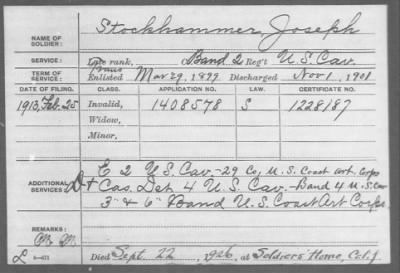 NAME OF SOLDIER: Stockhammer, Joseph
SERVICE: Late rank, Band 2 Reg't U.S. Cav.
TERM OF SERVICE: Enlisted Mar 29, 1899 Discharged Nov 1, 1901
DATE OF FILING. CLASS. APPLICATION NO. LAW. CERTIFICATE NO.
1913, Feb. 25 Invalid, 1408578 S 1228187
Widow,
Minor.
ADDITIONAL SERVICES: E 2 U.S. Cav.-29 Co, U.S. Coast Art. Corps
Cas. Det 4 U.S. Cav.-Band 4 U.S. Cav
3" & 6" Band U.S. Coast Art Corps
REMARKS:
Died Sept. 22, 1926, at Soldiers Home, Calif